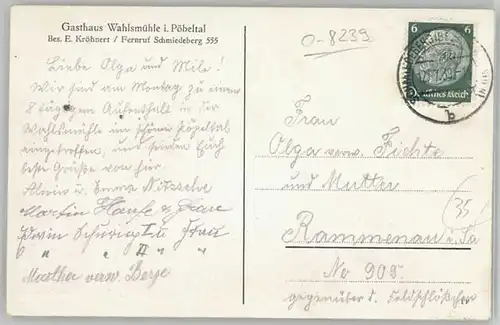 Gasthaus Wahlsmühle i. Pöbeltal
Bes. E. Kröhnert / Fernruf Schmiedeberg 555
0-8239
6 6
Deutsches Reich
Liebe Olga und Mile!
Wir sind am Montag zu
8 tägigem Aufenthalt in der
Wahlsmühle im schönen Pöpeltal
eingetroffen, und senden Euch
beste Grüße von hier.
Alwin u. Emma Nitzsche
Martin Haufe u. Frau
Erwin Schurig I u Frau
" " II " "
Martha verw.
Frau
Olga verw. Fichte
und Mutter
35
Rammenau i. Sa
No 90S
gegenüber d. Feldschlößchen